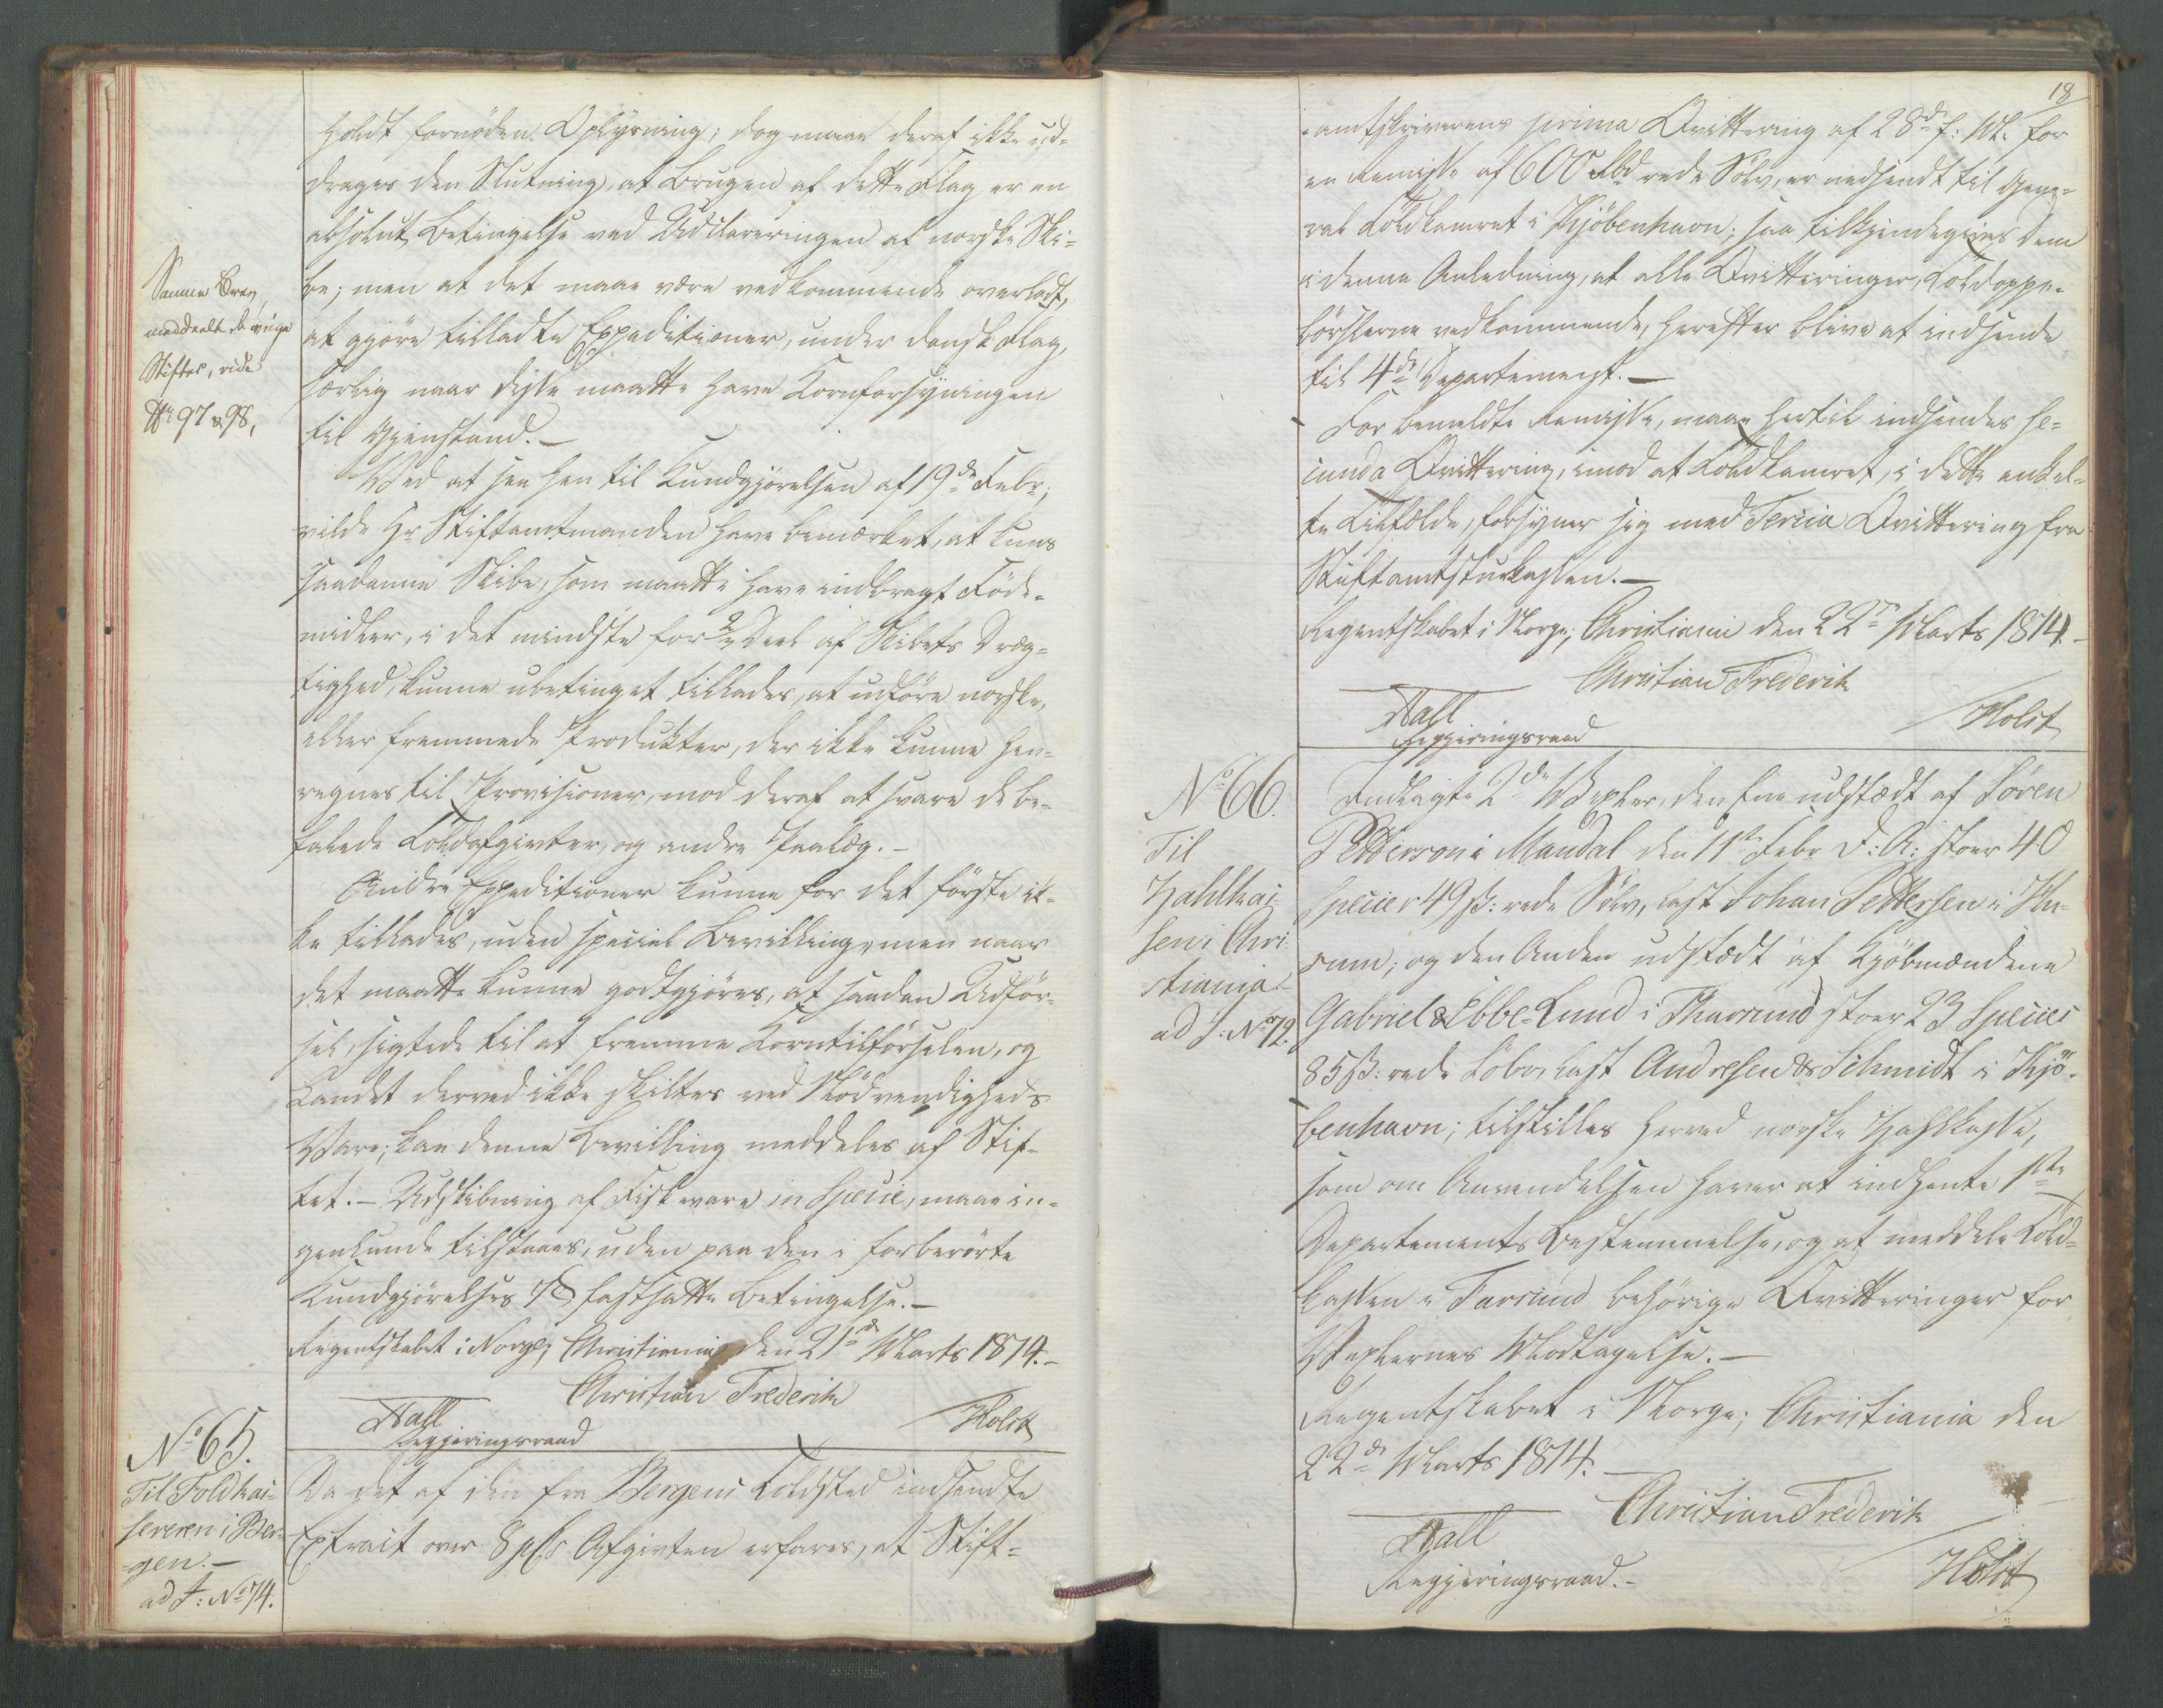 holdt fornöden Oplysning; dog maae deraf ikke ud-
drages den Slutning, at Brugen af dette Flag er en
absolut Betingelse ved Udclareringen af norske Ski-
be; men at det maae være vedkommende overladt,
at gjöre tilladte Expeditioner, under dansk Flag,
særlig naar disse maatte have Kornforsyningen
til Gjenstand.-
Samme Brev
meddeelt de övrige
Stifter, vide
No 97 & 98,
Ved at see hen til Kundgjörelsen af 19de Febr:,
vilde Hr Stiftamtmanden have bemærket, at kuns
saadanne Skibe, som maatte have indbragt Föde-
midler, i det mindste for Deel af Skibets Dræg-
tighed, kunne ubetinget tillades, at udföre norske,
eller fremmede Produkter, der ikke kunne hen-
regnes til Provisioner, mod deraf at svare de be-
falede Toldafgivter, og andre Paalæg.-
Andre Expeditioner kunne for det förste ik-
ke tillades, uden speciel Bevilling, men naar
det maatte kunne godtgjöres, at saadan Udför-
sel, sigtede til at fremme Korntilförselen, og
Landet derved ikke skiltes ved Nödvendigheds
Vare; kan denne Bevilling meddeles af Stif-
tet.- Udskibning af Fiskevare in Specie, maae in-
genlunde tilstaaes, uden paa den i forberörte
Kundgjörelses § fastsatte Betingelse.-
Regentskabet i Norge; Christiania den 21de Marts 1814.-
Christian Frederik
Aall
Regjeringsraad
Holst
No 65.
Til Toldkas-
sereren i Ber-
-gen.-
ad J: No 74.
Da det af den fra Bergens Toldsted indsendte
Extract over Afgivten erfares, at Stift-
18
-amtskriverens prima Qvittering af 28de f: M: for
en Remisse af 600 Rbd rede Sölv, er nedsendt til Gene-
ral Toldkamret i Kjöbenhavn; saa tilkjendegives Dem
i denne Anledning, at alle Qvitteringer, Toldoppe-
börslerne vedkommende, herefter blive at indsende
til 4de Departement.-
For bemeldte Remisse, maae hertil indsendes se-
cunda Qvittering, imod at Toldkamret, i dette enkel-
te Tilfælde, forsyner sig med Tertia Qvittering fra
Stiftamtstuekassen.-
Regentskabet i Norge; Christiania den 22de Marts 1814.-
Christian Frederik
Aall
Regjeringsraad
Holst
No 66.
Til
Zahlkas-
sen i Chri-
stiania
ad J: No 72.
Indlagte 2de Vexler, den Ene udstædt af Sören
Pettersen i Mandal den 11te Febr d: A: stoer 40
Species 49 ß: rede Sölv, paa Johan Pettersen i Hu-
sum; og den Anden udstædt af Kjöbmændene
Gabriel & Ebbe Lund i Farsund stoer 23 Species
85 ß: rede Sölv, paa Andresen & Schmidt i Kjö-
benhavn; tilstilles herved norske Zahlkasse,
som om Anvendelsen haver at indhente 1ste
Departements Bestemmelse, og at meddele Told-
kassen i Farsund behörige Qvitteringer for
Vexlernes Modtagelse.-
Regentskabet i Norge; Christiania den
22de Marts 1814.
Christian Frederik
Aall
Regjeringsraad.-
Holst